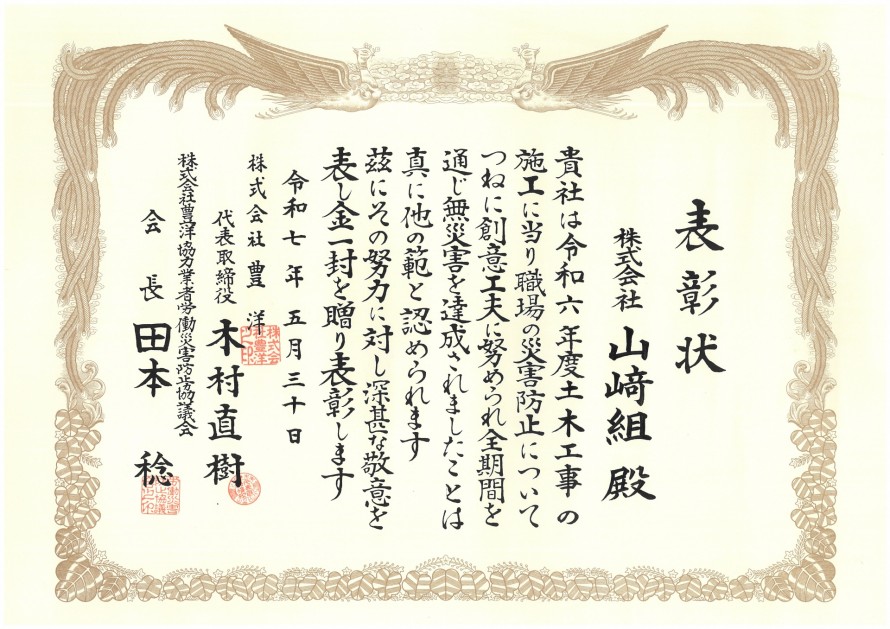 表彰状
株式会社 山﨑組 殿
貴社は令和六年度土木工事の
施工に当り職場の災害防止について
つねに創意工夫に努められ全期間を
通じ無災害を達成されましたことは
真に他の範と認められます
茲にその努力に対し深甚な敬意を
表し金一封を贈り表彰します
令和七年五月三十日
株式会社豊洋
代表取締役 木村直樹
株式会社豊洋協力業者労働災害防止協議会
会長 田本 稔